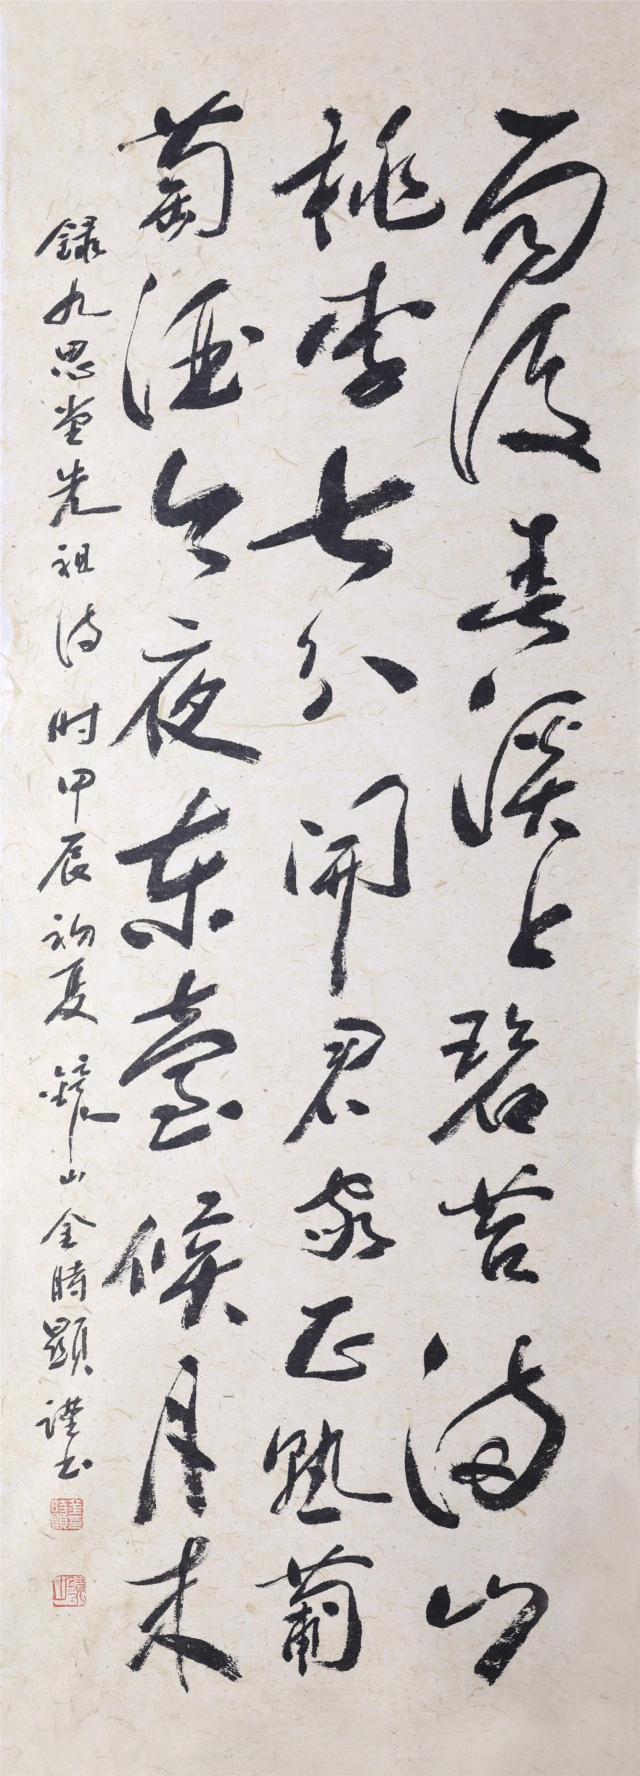 雨後春溪上碧苔滿山
桃李七分開君家正熟葡
萄酒今夜東臺候月来
錄九思堂先祖詩 时甲辰初夏 鏡山金時顯謹书